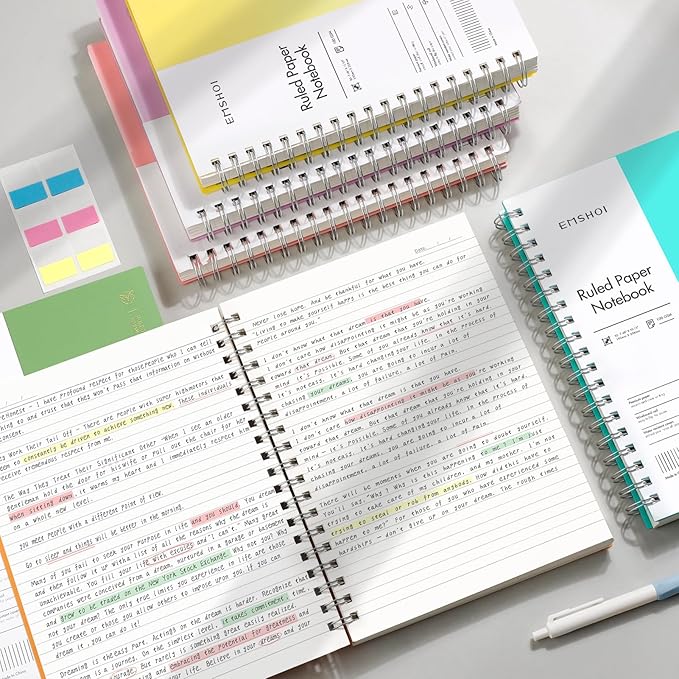 EMSHOI
Ruled Paper
Notebook
EMSHOI
Ruled Paper
Notebook
Date
Never lose hope. And be thankful for what you have.
Living to make yourself happy is the best thing you can do for
people around you.
I don't know what that dream is that you have.
I don't care how disappointing it might be as you're working
toward that dream. But that dream that you're holding in your
mind it's possible. Some of you already know that it's hard.
It's not easy. It's hard changing your life. In the process of
chasing your dreams, you are going to incur a lot of
disappointment. a lot of failure. a lot of pain.
I don't know what that dream is that you have.
I don't care how disappointing it might be as you're working
toward that dream. But that dream that you're holding in your
mind it's possible. Some of you already know that it's hard.
It's not easy. It's hard changing your life. In the process of
chasing your dreams, you are going to incur a lot of
disappointment. a lot of failure. a lot of pain.
There will be moments when you are going to doubt yourself.
You'll say. "Why? Why is this happening to me? I'm just
trying to take care of my children, and my mother. I'm not
trying to steal or rob from anybody. How did this have to
happen to me? For those of you who have experienced some
hardships — don't give up on your dream. The rough times
Honest - I have profound respect for those people who I can tell
thing to and trust that they won't pass that information on without
consent.
Work Their Tail Off - There are people with super highmotors that
seem to constantly be driven to achieve something new. These individuals
receive tremendous respect from me.
The Way They Treat Their Significant Other - When I see an older
gentleman hold the door for his wife or pull out the chair for her
when sitting down, it warms my heart and I immediately respect him
on a whole new level.
you meet people with a different point of view.
Go to sleep and things will be better in the morning.
Many of you fail to seek your purpose in life and you should. You dream
and then follow it up with a list of all the reasons why the dream is
unachievable. You fill your life with excuses and "I can't". Many great
companies were conceived from a dream, nurtured in a garage or basement
and grew to be traded on the New York Stock Exchange. Why not you? Why
not your dream? The only true limits you experience in life are those
you create or those you allow others to impose upon you. If you can
dream it, you can do it!
Dreaming is the easy part. Acting on the dream is harder. Recognize that
is a journey. On the simplest level, it takes commitment, time,
and courage. But rarely is something great easily realized.
and embracing the potential for greatness and
life. Believe in your dreams and your